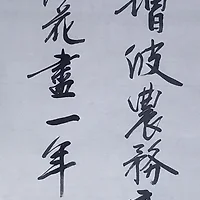 增波農務
花盡一年